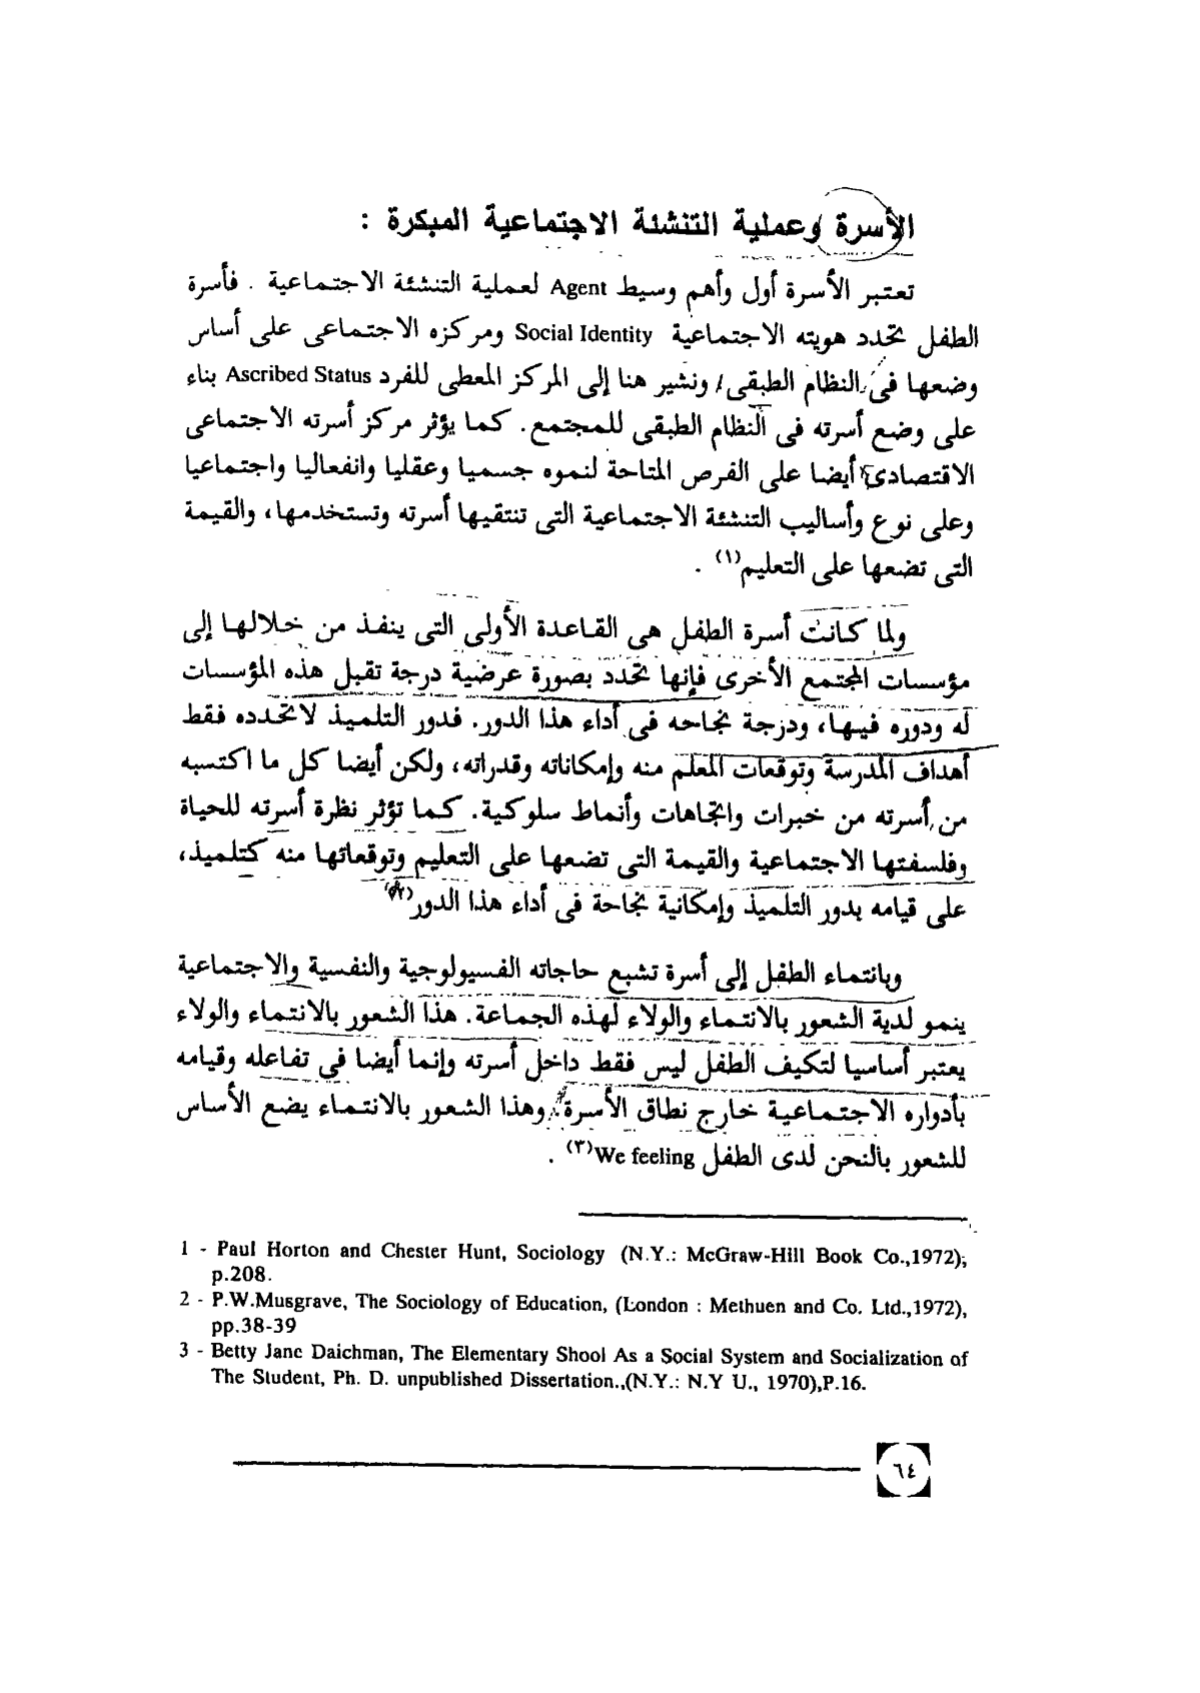 الأسرة وعملية التنشئة الاجتماعية المبكرة :
تعتبر الأسرة أول وأهم وسيط Agent لعملية التنشئة الاجتماعية . فأسرة
الطفل تحدد هويته الاجتماعية Social Identity ومركزه الاجتماعى على أساس
وضعها فى النظام الطبقى/ ونشير هنا إلى المركز المعطى للفرد Ascribed Status بناء
على وضع أسرته فى النظام الطبقى للمجتمع. كما يؤثر مركز أسرته الاجتماعى
الاقتصادى أيضا على الفرص المتاحة لنموه جسميا وعقليا وانفعاليا واجتماعيا
وعلى نوع وأساليب التنشئة الاجتماعية التى تنتقيها أسرته وتستخدمها، والقيمة
التى تضعها على التعليم(١) .
ولما كانت أسرة الطفل هى القاعدة الأولى التى ينفذ من خلالها إلى
مؤسسات المجتمع الأخرى فإنها تحدد بصورة عرضية درجة تقبل هذه المؤسسات
له ودوره فيها، ودرجة نجاحه فى أداء هذا الدور. فدور التلميذ لاتحدده فقط
أهداف المدرسة وتوقعات المعلم منه وإمكاناته وقدراته، ولكن أيضا كل ما اكتسبه
من أسرته من خبرات واتجاهات وأنماط سلوكية. كما تؤثر نظرة أسرته للحياة
وفلسفتها الاجتماعية والقيمة التى تضعها على التعليم وتوقعاتها منه كتلميذ،
على قيامه بدور التلميذ وإمكانية نجاحة فى أداء هذا الدور(٢)
وبانتماء الطفل إلى أسرة تشبع حاجاته الفسيولوجية والنفسية والاجتماعية
ينمو لدية الشعور بالانتماء والولاء لهذه الجماعة. هذا الشعور بالانتماء والولاء
يعتبر أساسيا لتكيف الطفل ليس فقط داخل أسرته وإنما أيضا فى تفاعله وقيامه
بأدواره الاجتماعية خارج نطاق الأسرة. وهذا الشعور بالانتماء يضع الأساس
للشعور بالنحن لدى الطفل We feeling(٣) .
1 - Paul Horton and Chester Hunt, Sociology (N.Y.: McGraw-Hill Book Co.,1972),
p.208.
2 - P.W.Musgrave, The Sociology of Education, (London : Methuen and Co. Ltd.,1972),
pp.38-39
3 - Betty Jane Daichman, The Elementary Shool As a Social System and Socialization of
The Student, Ph. D. unpublished Dissertation.,(N.Y.: N.Y U., 1970),P.16.
٦٤